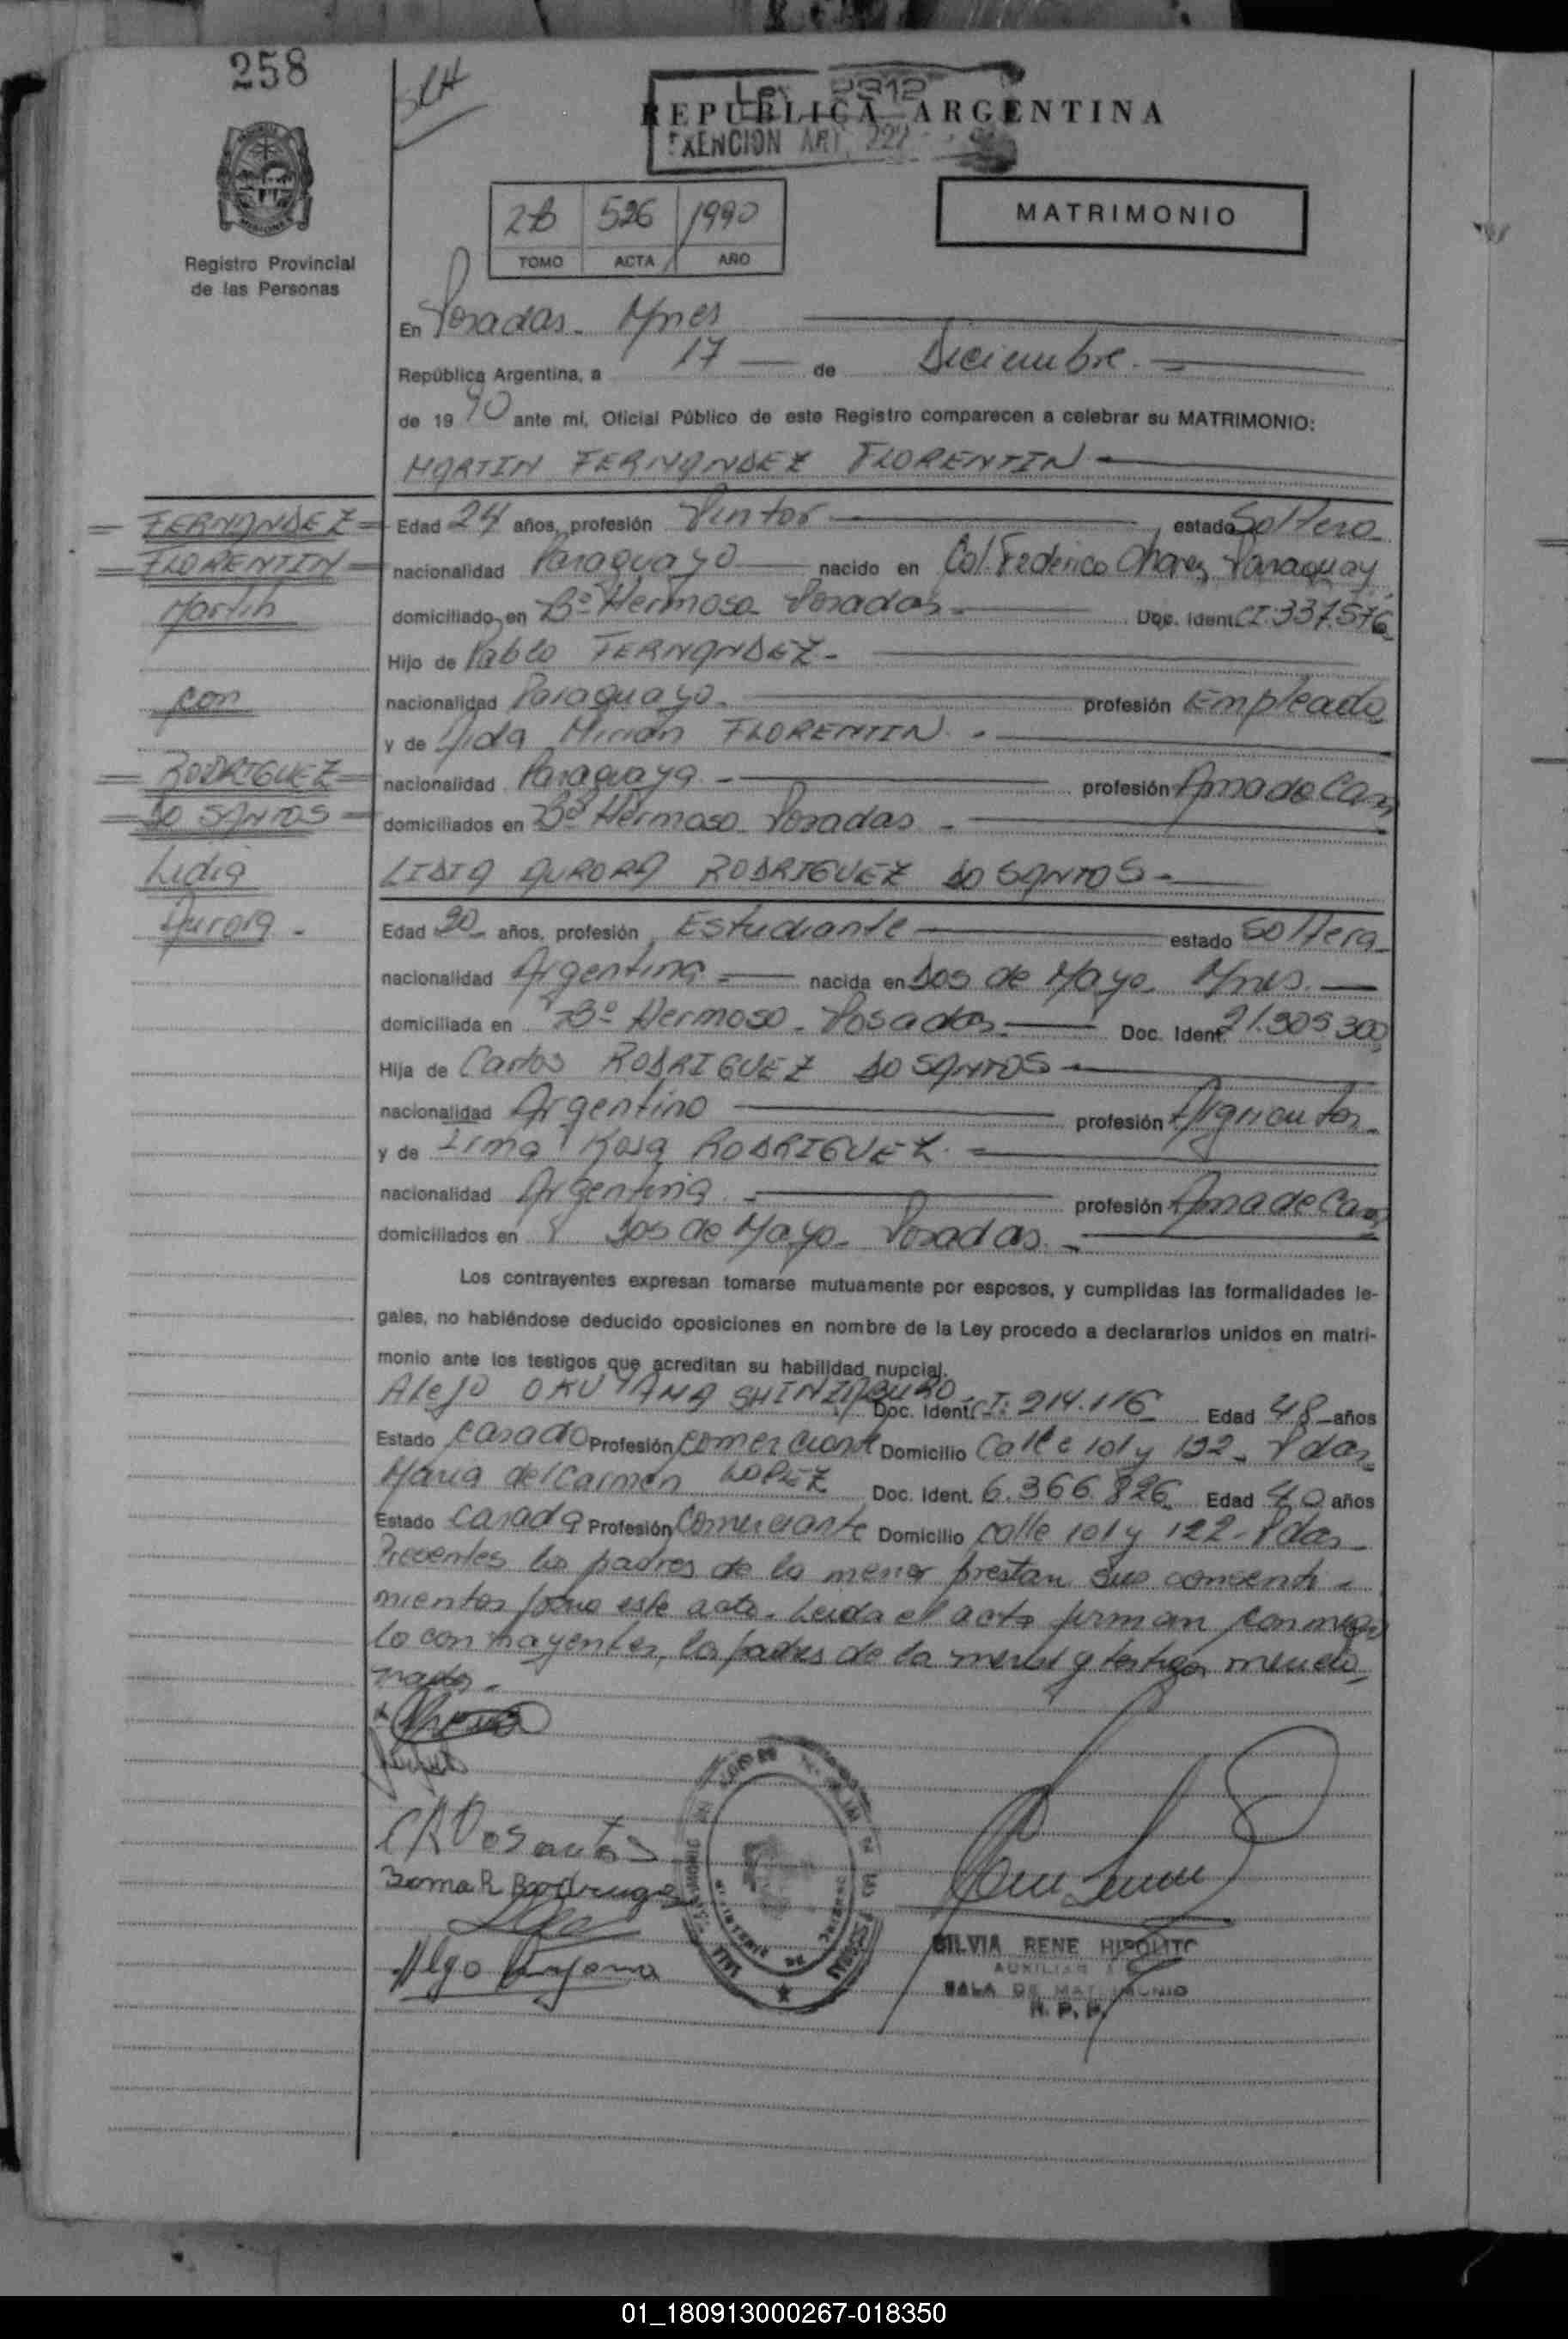 258
REPUBLICA ARGENTINA
Ley 2312
EXENCION ART. 222
MATRIMONIO
2B 526 1990
TOMO ACTA AÑO
Registro Provincial
de las Personas
En Posadas - Mnes
República Argentina, a 17 de Diciembre.
de 19 90 ante mi, Oficial Público de este Registro comparecen a celebrar su MATRIMONIO:
MARTIN FERNANDEZ FLORENTIN
FERNANDEZ
FLORENTIN
Martin
con
RODRIGUEZ
DO SANTOS
Lidia
Aurora -
Edad 24 años, profesión Pintor estado Soltero
nacionalidad Paraguayo nacido en Col. Federico Chavez Paraguay
domiciliado en Bº Hermoso Posadas - Doc. Ident. CI: 337.576
Hijo de Pablo FERNANDEZ -
nacionalidad Paraguayo. profesión Empleado
y de Mirian FLORENTIN -
nacionalidad Paraguaya - profesión Ama de Casa
domiciliados en Bº Hermoso Posadas -
LIDIA AURORA RODRIGUEZ DO SANTOS -
Edad 20 años, profesión Estudiante estado Soltera
nacionalidad Argentina nacida en Dos de Mayo - Mnes.
domiciliada en Bº Hermoso - Posadas - Doc. Ident. 21.305.300
Hija de Carlos RODRIGUEZ DO SANTOS -
nacionalidad Argentino profesión Agricultor
y de Irma Rosa RODRIGUEZ -
nacionalidad Argentina - profesión Ama de Casa
domiciliados en Dos de Mayo - Posadas -
Los contrayentes expresan tomarse mutuamente por esposos, y cumplidas las formalidades le-
gales, no habiéndose deducido oposiciones en nombre de la Ley procedo a declararlos unidos en matri-
monio ante los testigos que acreditan su habilidad nupcial.
Alejo OKUYAMA SHINZABURO - Doc. Ident. CI: 214.116 Edad 48 años
Estado casado Profesión comerciante Domicilio Calle 101 y 122 - Pdas
Maria del Carmen LOPEZ Doc. Ident. 6.366.826 Edad 40 años
Estado casada Profesión Comerciante Domicilio calle 101 y 122 - Pdas
Presentes los padres de la menor prestan sus consenti-
mientos para este acto. Leida el acta firman conmigo
lo contrayentes, los padres de la menor y testigos mencio-
nados.
C R Dosantos
Irma R Rodriguez
SILVIA RENE HIPOLITO
AUXILIAR
SALA DE MATRIMONIO
R. P. P.
01_180913000267-018350